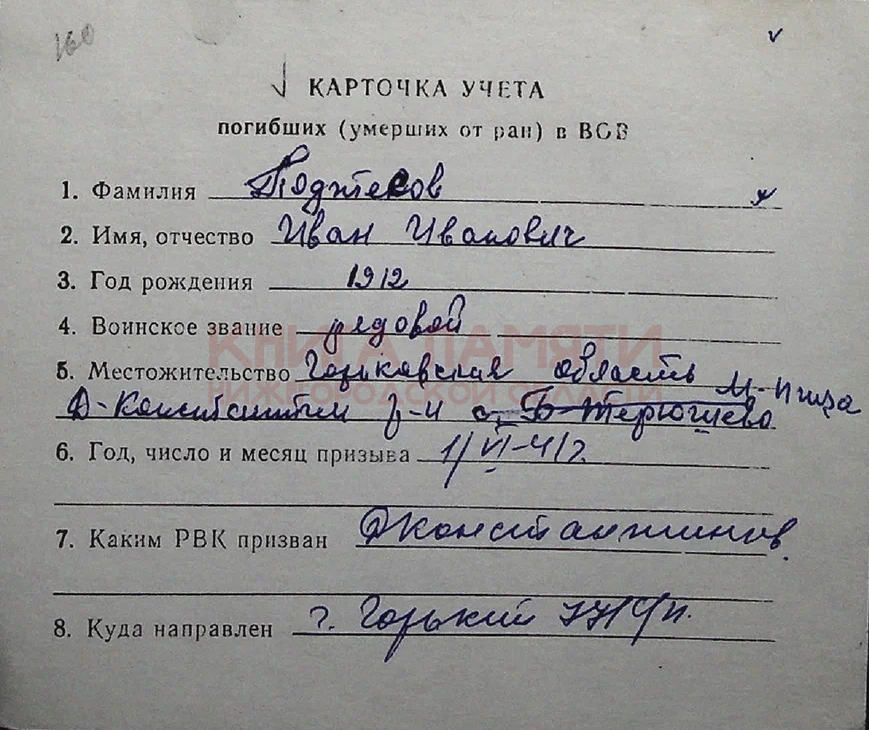 160
КАРТОЧКА УЧЕТА
погибших (умерших от ран) в ВОВ
1. Фамилия Подтесов
2. Имя, отчество Иван Иванович
3. Год рождения 1912
4. Воинское звание рядовой
КНИГА ПАМЯТИ
5. Местожительство Горьковская область
НИЖЕГОРОДСКОЙ ОБЛАСТИ
М-Пица
Д-Константин р-н с. Б-Терюшево
6. Год, число и месяц призыва 1/VI-41г.
7. Каким РВК призван Дконстантинов.
8. Куда направлен г. Горький